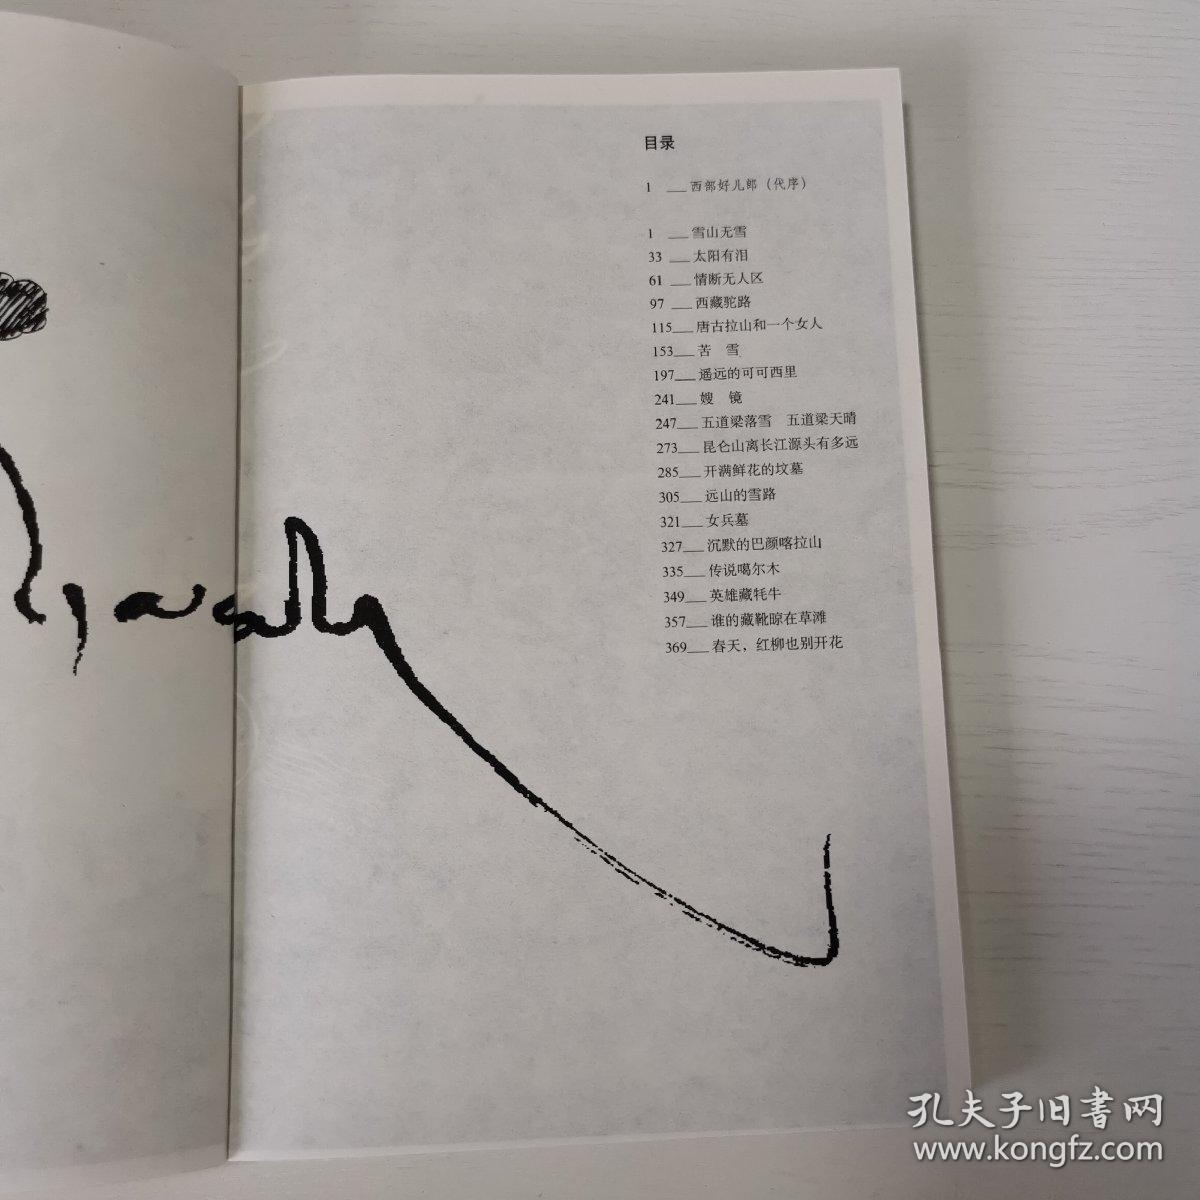 目录
1 ___西部好儿郎（代序）
1 ___雪山无雪
33 ___太阳有泪
61 ___情断无人区
97 ___西藏驼路
115___唐古拉山和一个女人
153___苦 雪
197___遥远的可可西里
241___嫂 镜
247___五道梁落雪 五道梁天晴
273___昆仑山离长江源头有多远
285___开满鲜花的坟墓
305___远山的雪路
321___女兵墓
327___沉默的巴颜喀拉山
335___传说噶尔木
349___英雄藏牦牛
357___谁的藏靴晾在草滩
369___春天，红柳也别开花
孔夫子旧書网
www.kongfz.com